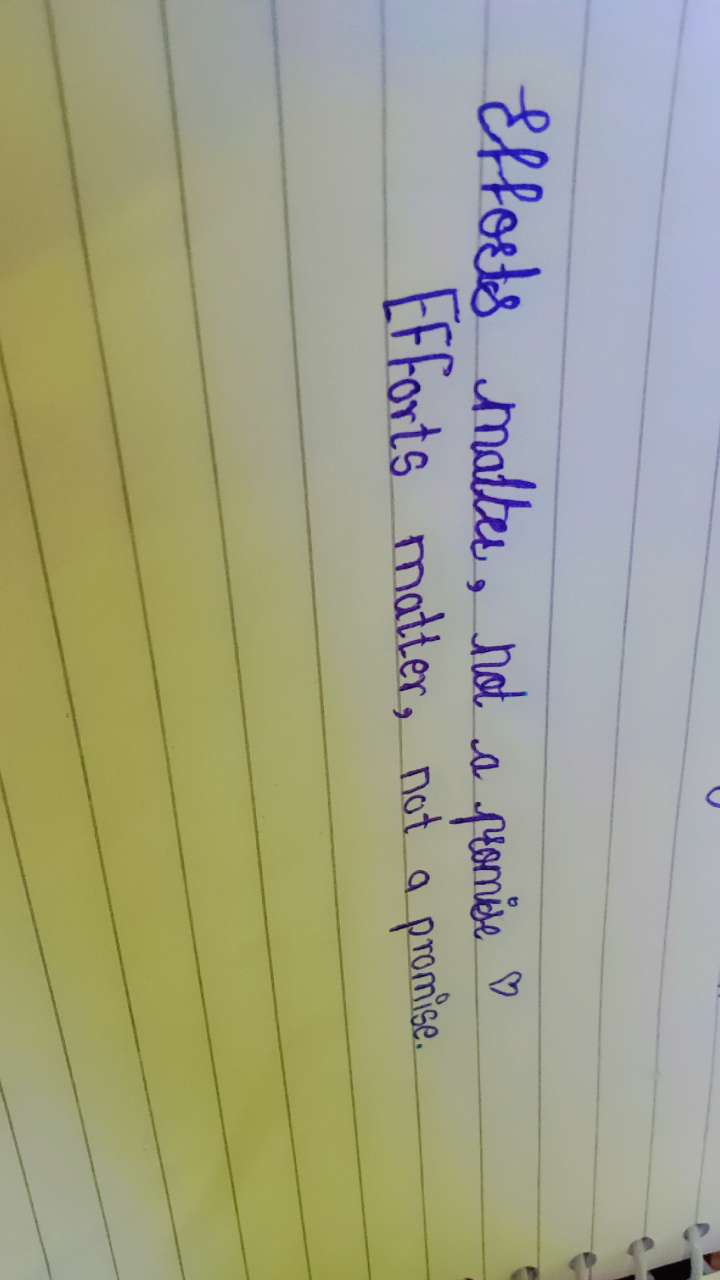 Efforts matter, not a promise ♡
Efforts matter, not a promise.